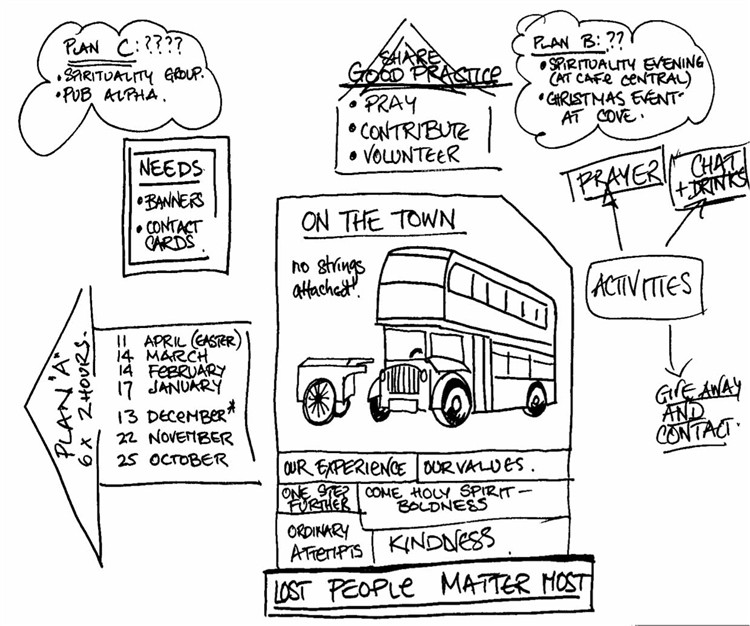 PLAN C:????
• SPIRITUALITY GROUP.
• PUB ALPHA.
SHARE
GOOD PRACTICE
• PRAY
• CONTRIBUTE
• VOLUNTEER
PLAN B:??
• SPIRITUALITY EVENING
(AT CAFE CENTRAL)
• CHRISTMAS EVENT
AT COVE.
NEEDS
• BANNERS
• CONTACT
CARDS.
PRAYER
CHAT
+ DRINKS
ACTIVITIES
GIVE AWAY
AND
CONTACT.
ON THE TOWN
no strings
attached!
PLAN "A"
6 x 2 HOURS.
11 APRIL (EASTER)
14 MARCH
14 FEBRUARY
17 JANUARY
13 DECEMBER*
22 NOVEMBER
25 OCTOBER
OUR EXPERIENCE OUR VALUES.
ONE STEP
FURTHER
COME HOLY SPIRIT —
BOLDNESS
ORDINARY
ATTEMPTS
KINDNESS.
LOST PEOPLE MATTER MOST